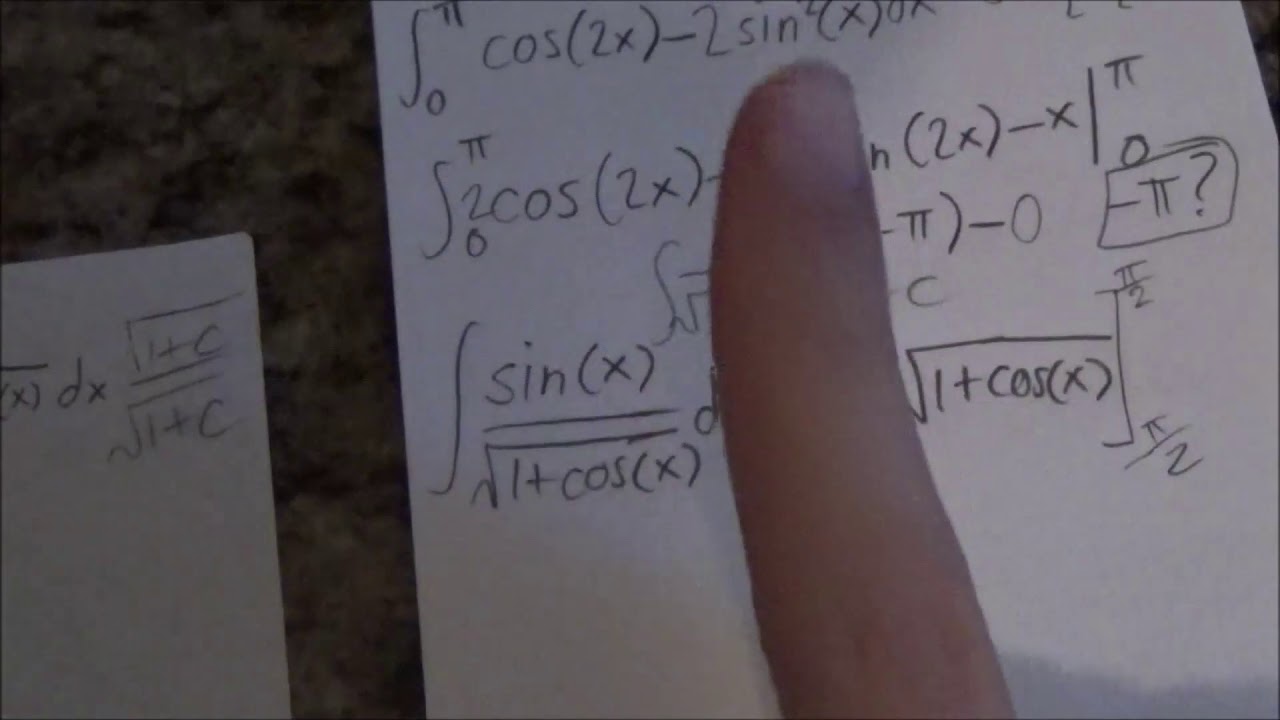 ∫₀^π cos(2x)−2sin²(x)dx
∫₀^π 2cos(2x)− n(2x)−x|₀^π
−π)−0 −π?
∫ C
∫ sin(x)/√(1+cos(x)) d √(1+cos(x)) ]_{π/2}^{π/2}
(x) dx √(1+C)/√(1+C)